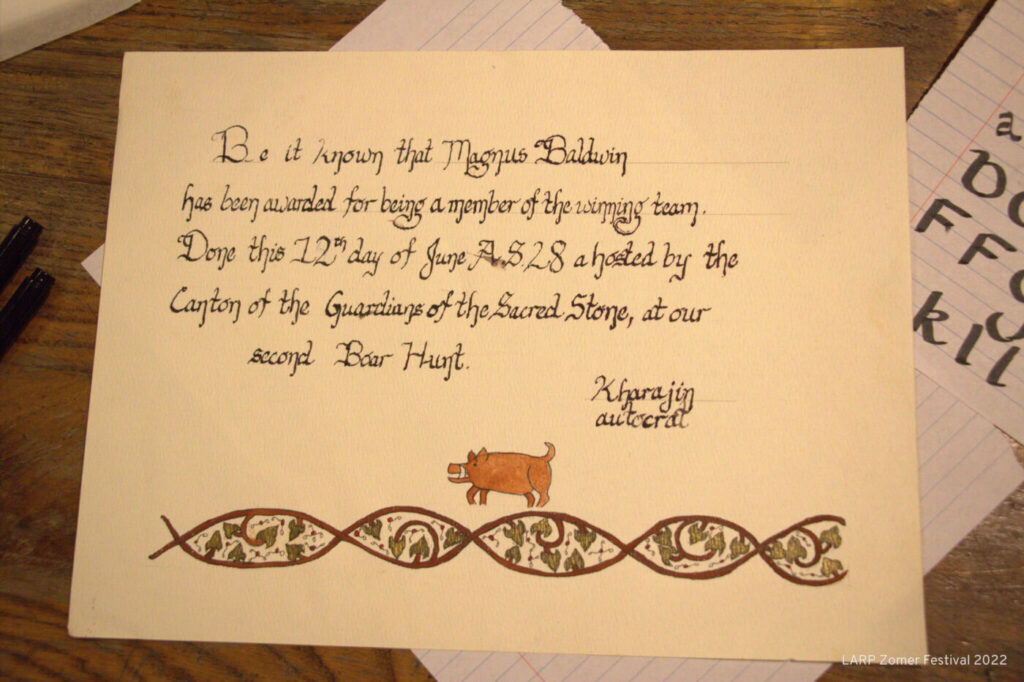 Be it known that Magnus Baldwin
has been awarded for being a member of the winning team.
Done this 12th day of June A.S. 28 a hosted by the
Canton of the Guardians of the Sacred Stone, at our
second Boar Hunt.
Kharajin
autocrat
a
F F
kll
LARP Zomer Festival 2022